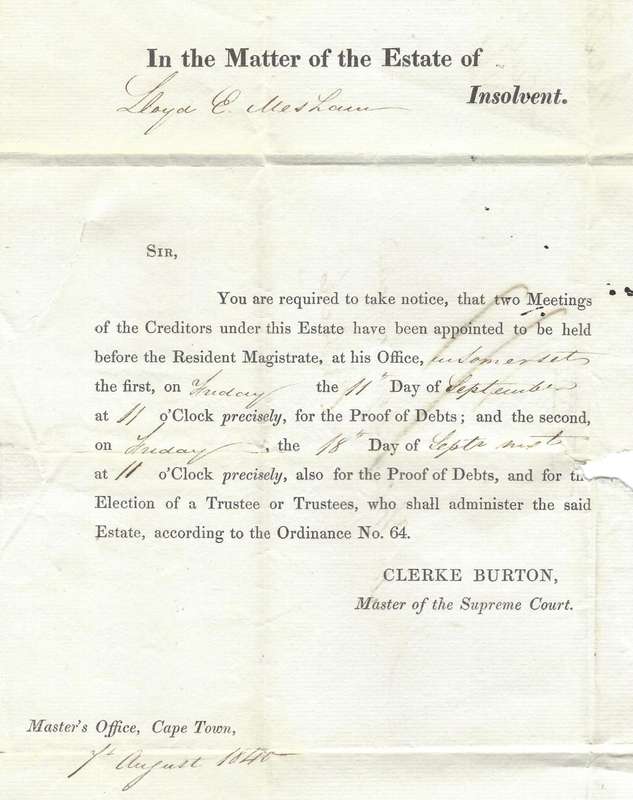 In the Matter of the Estate of
Lloyd E. Mesham
Insolvent.
SIR,
You are required to take notice, that two Meetings
of the Creditors under this Estate have been appointed to be held
before the Resident Magistrate, at his Office, in Somerset
the first, on Friday the 11th Day of September
at 11 o'Clock precisely, for the Proof of Debts; and the second,
on Friday, the 18th Day of Septr next
at 11 o'Clock precisely, also for the Proof of Debts, and for th
Election of a Trustee or Trustees, who shall administer the said
Estate, according to the Ordinance No. 64.
CLERKE BURTON,
Master of the Supreme Court.
Master's Office, Cape Town,
August 1840